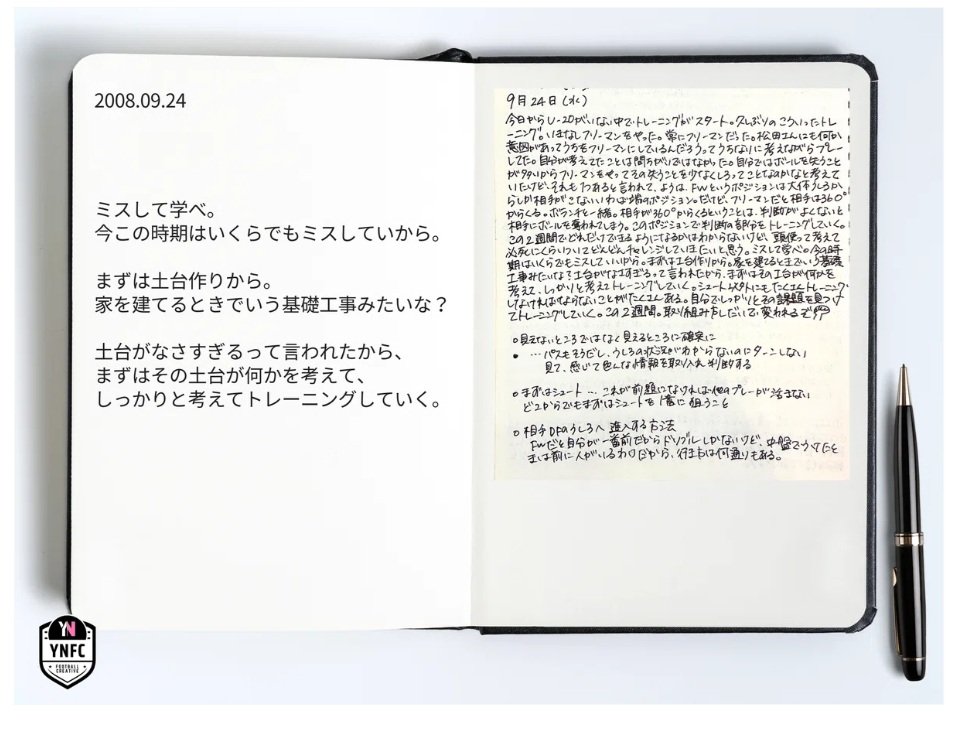 2008.09.24
ミスして学べ。
今この時期はいくらでもミスしていから。
まずは土台作りから。
家を建てるときでいう基礎工事みたいな？
土台がなさすぎるって言われたから、
まずはその土台が何かを考えて、
しっかりと考えてトレーニングしていく。
9月24日(水)
今日からU-20がいない中でトレーニングがスタート。久しぶりのこういったトレ
ーニング。いきなしフリーマンをやった。常にフリーマンだった。松田さんにも何か
意図があってうちをフリーマンにしているんだろうってうちなりに考えながらプレー
してた。自分が考えてたことは間ちがいではなかった。自分ではボールを失うことが
多いからフリーマンをやってその失うことを少なくしろってことなのかなと考えて
いたけど、それも1つあると言われて、ようは、FWというポジションは大体うしろか
らしか相手がこないいわば端のポジション。だけど、フリーマンだと相手は360°
からくる。ボランチと一緒。相手が360°からくるということは、判断がよくないと
相手にボールを奪われてしまう。このポジションで判断の部分をトレーニングしていく。
この2週間でどれだけできるようになるかはわからないけど、頭使って考えて
必死にくらいついてどんどんチャレンジしていきたいと思う。ミスして学べ。今この時
期はいくらでもミスしていいから。まずは土台作りから。家を建てるときでいう基礎
工事みたいな？土台がなさすぎるって言われたから、まずはその土台が何かを
考えて、しっかりと考えてトレーニングしていく。シュート以外にもたくさんトレーニング
しなければならないことがたくさんある。自分でしっかりとその課題を見つけ
てトレーニングしていく。この2週間。取り組み方しだいで変われるぞ
○見えないところではなく見えるところに確実に
● …パスもそうだし、うしろの状況がわからないのにターンしない
見て、感じて色んな情報を取り入れ判断する
○まずはシュート … これが前題になければ他のプレーが活きない
どこからでもまずはシュートを1番に狙うこと
○相手DFのうしろへ進入する方法
FWだと自分が一番前だからドリブルしかないけど、中盤でうけたと
きは前に人がいるわけだから、行き方は何通りもある。
YN
YNFC
FOOTBALL
CREATIVE